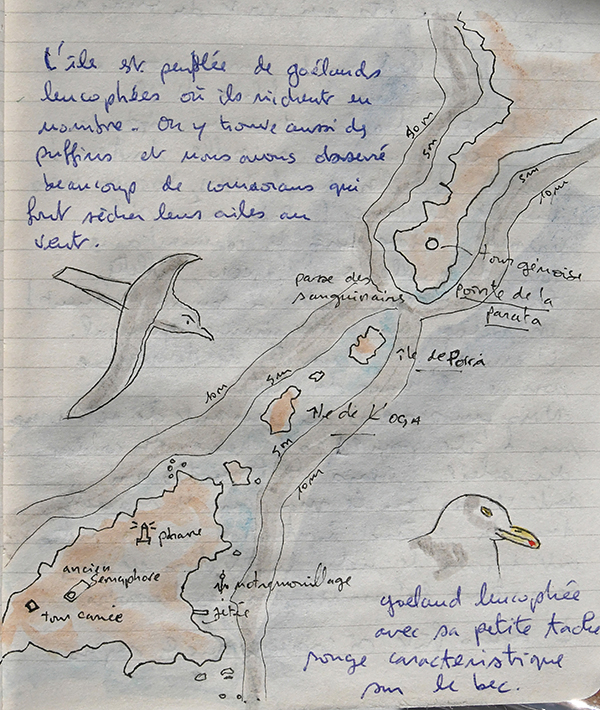 L'île est peuplée de goélands
leucophées où ils nichent en
nombre. On y trouve aussi des
puffins et nous avons observé
beaucoup de cormorans qui
font sécher leurs ailes au
vent.
10m
5m
5m
10m
tour génoise
passe des
sanguinaires
Pointe de la
Parata
île de Porri
10m
5m
île de L'OGA
5m
10m
phare
ancien
Sémaphore
tour carrée
notre mouillage
jetée
goéland leucophée
avec sa petite tache
rouge caractéristique
sur le bec.